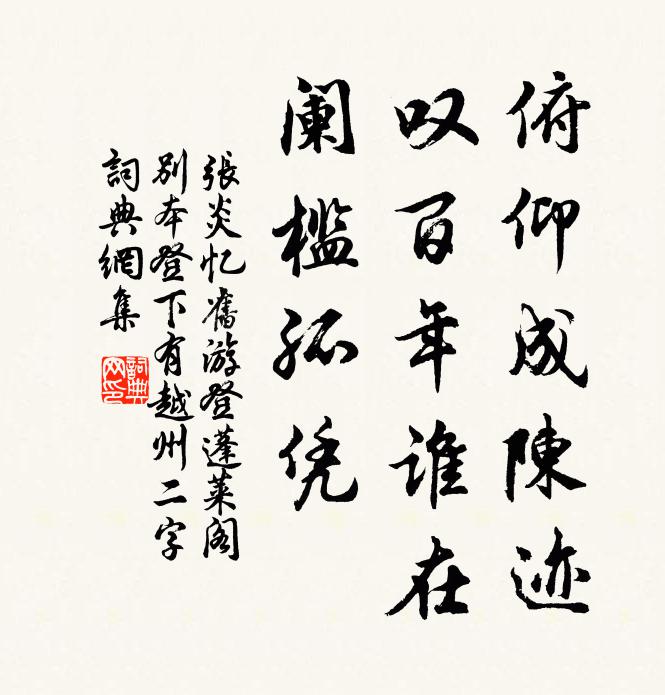 俯仰成陳迹
叹百年谁在
阑槛孤凭
張炎忆舊游登蓬莱阁
别本登下有越州二字
詞典網集
詞典
网印